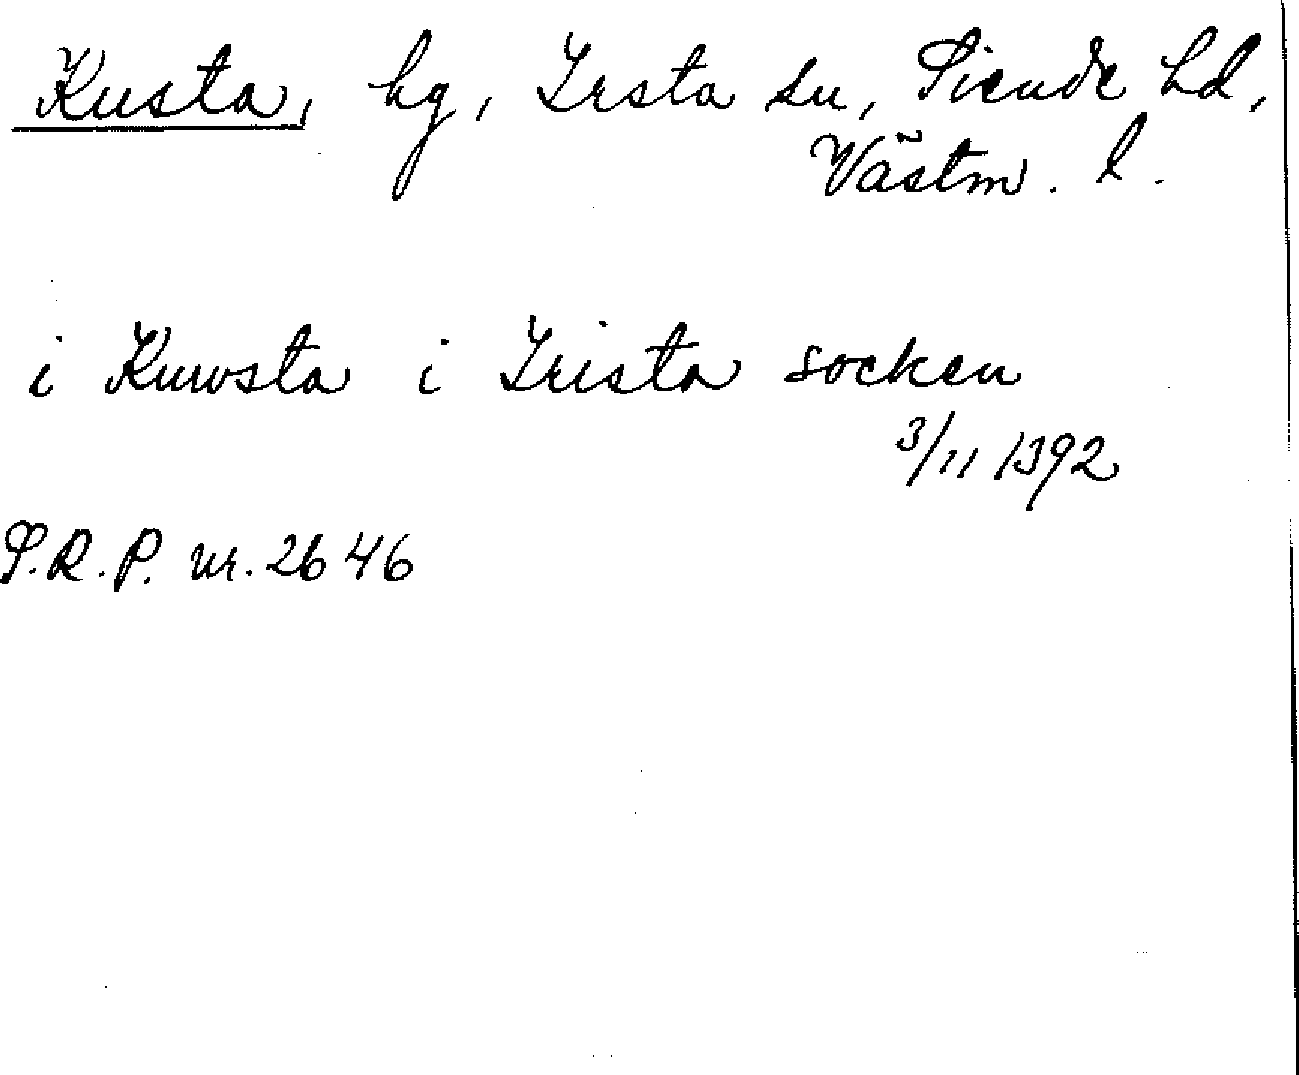 Kusta, hg, Irsta sn, Siende hd,
Västm. l.
i Kuwsta i Irista socken
3/11 1392
S.R.P. nr. 2646